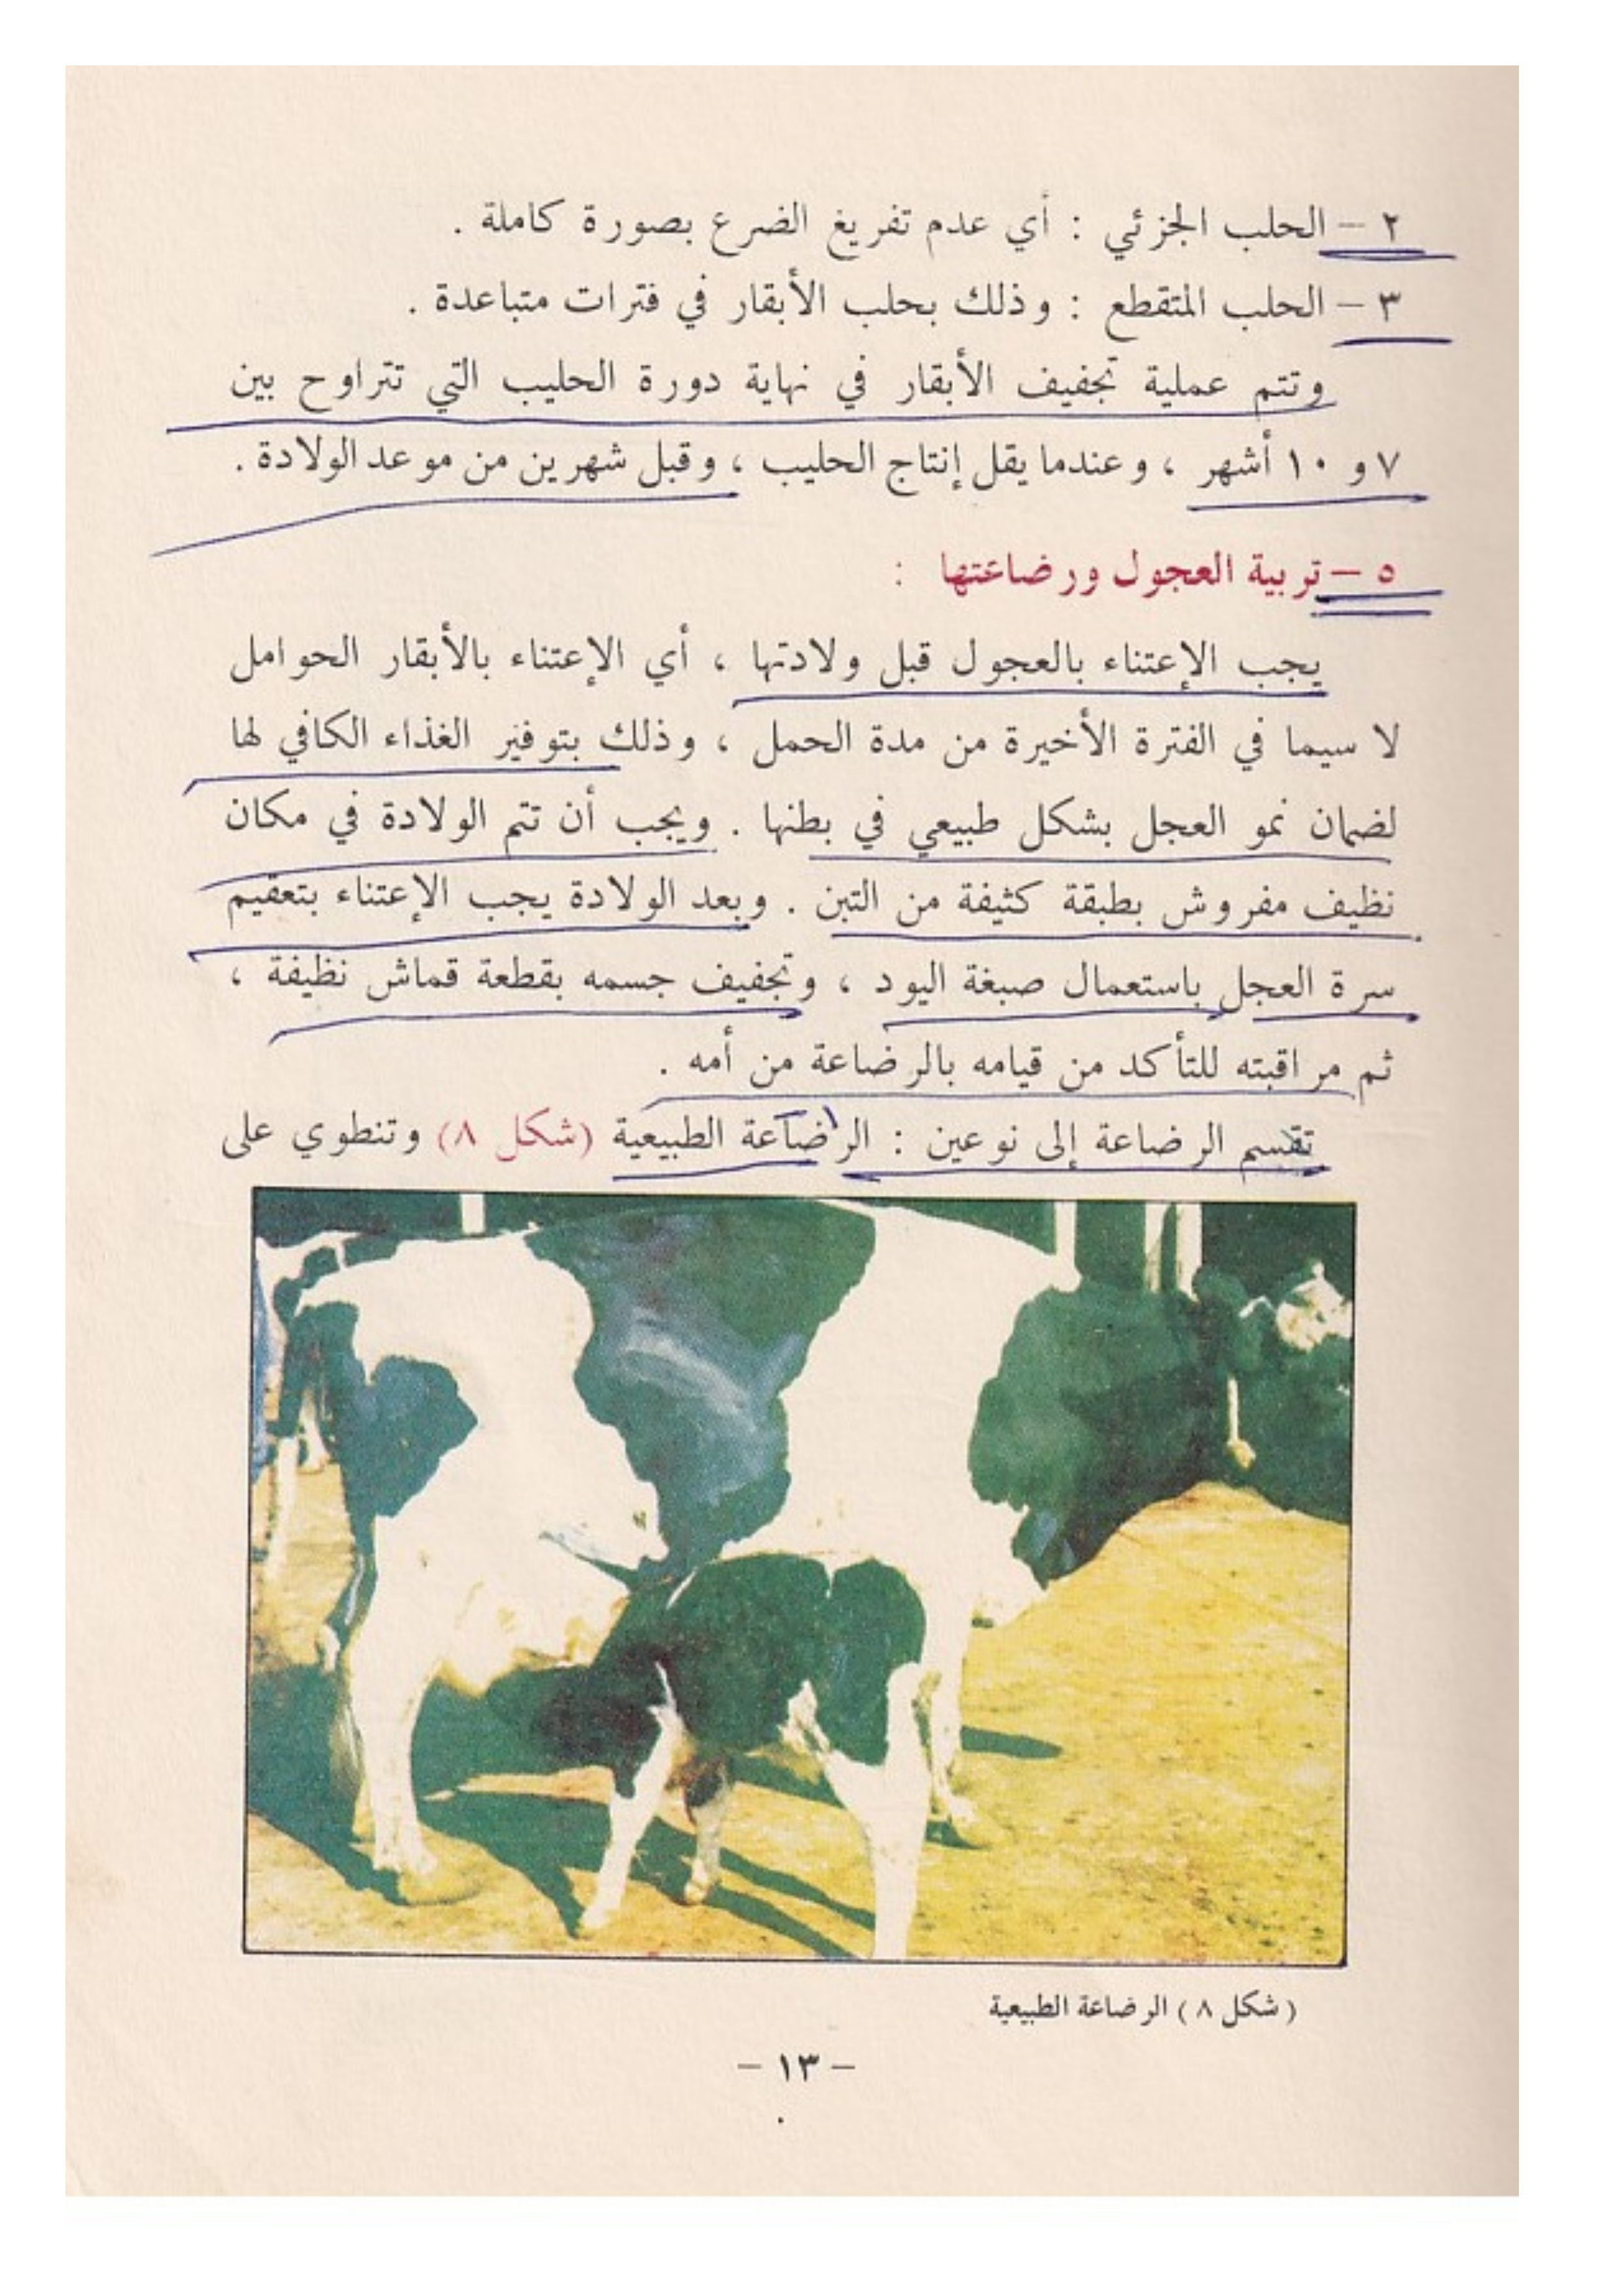 ٢ – الحلب الجزئي : أي عدم تفريغ الضرع بصورة كاملة .
٣ – الحلب المتقطع : وذلك بحلب الأبقار في فترات متباعدة .
وتتم عملية تجفيف الأبقار في نهاية دورة الحليب التي تتراوح بين
٧ و ١٠ أشهر ، وعندما يقل إنتاج الحليب ، وقبل شهرين من موعد الولادة .
٥ – تربية العجول ورضاعتها :
يجب الإعتناء بالعجول قبل ولادتها ، أي الإعتناء بالأبقار الحوامل
لا سيما في الفترة الأخيرة من مدة الحمل ، وذلك بتوفير الغذاء الكافي لها
لضمان نمو العجل بشكل طبيعي في بطنها . ويجب أن تتم الولادة في مكان
نظيف مفروش بطبقة كثيفة من التبن . وبعد الولادة يجب الإعتناء بتعقيم
سرة العجل باستعمال صبغة اليود ، وتجفيف جسمه بقطعة قماش نظيفة ،
ثم مراقبته للتأكد من قيامه بالرضاعة من أمه .
تقسم الرضاعة إلى نوعين : الرضاعة الطبيعية (شكل ٨) وتنطوي على
( شكل ٨ ) الرضاعة الطبيعية
– ١٣ –